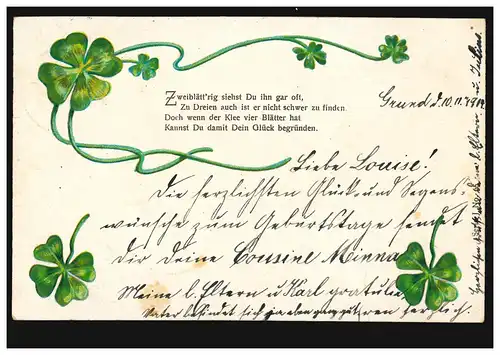 Zweiblätt'rig siehst Du ihn gar oft,
Zu Dreien auch ist er nicht schwer zu finden
Doch wenn der Klee vier Blätter hat
Kannst Du damit Dein Glück begründen.
Grund d. 10. 11.
Liebe Louise!
Die herzlichsten Glück- und Segens-
wünsche zum Geburtstage sendet
dir deine Cousine Minna
Meine l. Eltern u Karl
Vater befindet sich ja
herzlich.
Herzlichen